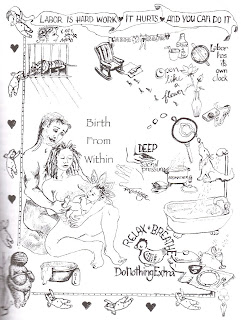 LABOR IS HARD WORK ♥ IT HURTS ♥ AND YOU CAN DO IT
Labor
has its
own
clock
Open
like
a
flower
Birth
From
Within
DEEP
pressure
massage
RELAX BREATHE
Do Nothing Extra